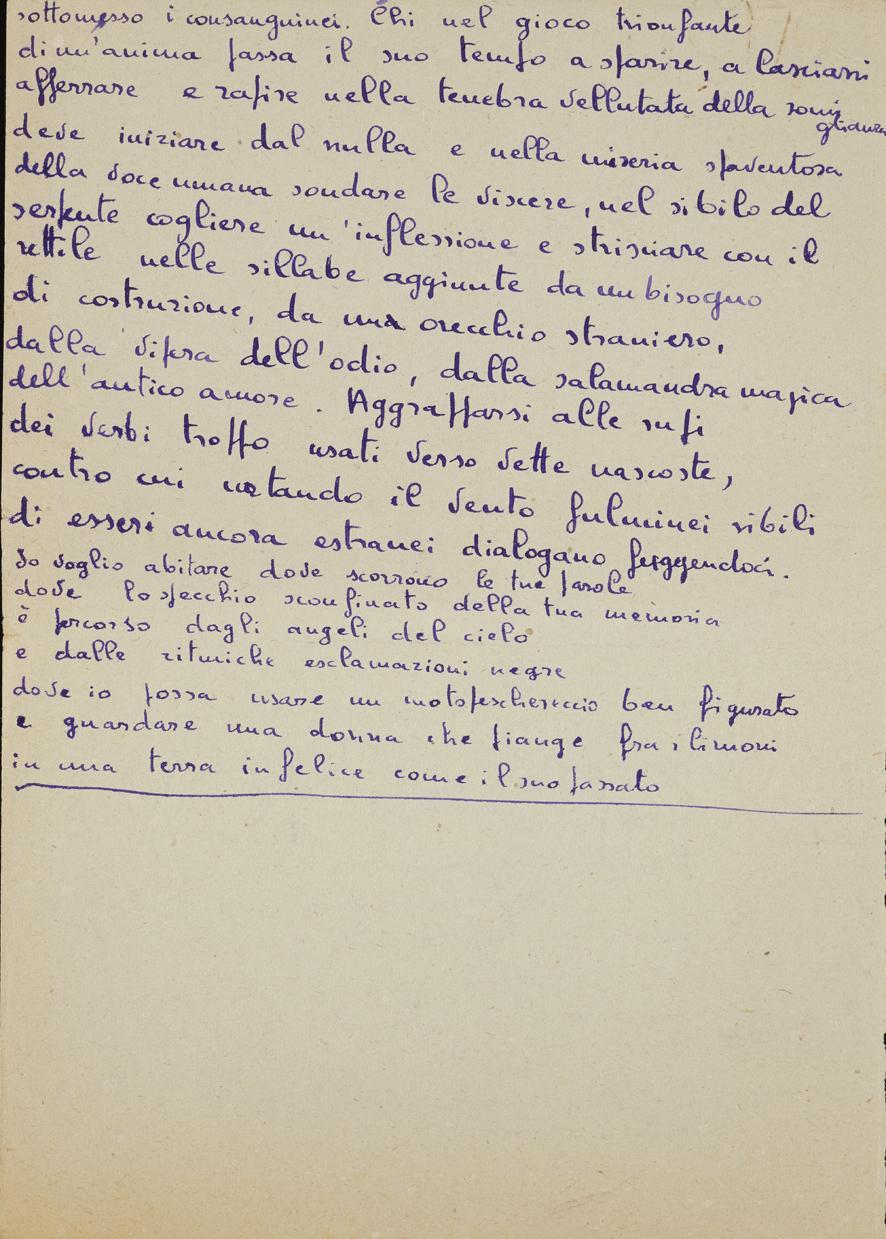 sottomesso i consanguinei. Chi nel gioco trionfante
di un'anima passa il suo tempo a sparire, a lasciarsi
afferrare e rapire nella tenebra vellutata della somi
glianza
deve iniziare dal nulla e nella miseria spaventosa
della voce umana sondare le viscere, nel sibilo del
serpente cogliere un'inflessione e strisciare con il
rettile nelle sillabe aggiunte da un bisogno
di costruzione, da una orecchio straniero,
dalla vipera dell'odio, dalla salamandra magica
dell'antico amore. Aggrapparsi alle rupi
dei verbi troppo usati verso vette nascoste,
contro cui urtando il vento fulminei sibili
di esseri ancora estranei dialogano
Io voglio abitare dove scorrono le tue parole
dove lo specchio sconfinato della tua memoria
è percorso dagli angeli del cielo
e dalle ritmiche esclamazioni negre
dove io possa usare un motopeschereccio ben figurato
e guardare una donna che piange fra i limoni
in una terra infelice come il suo passato